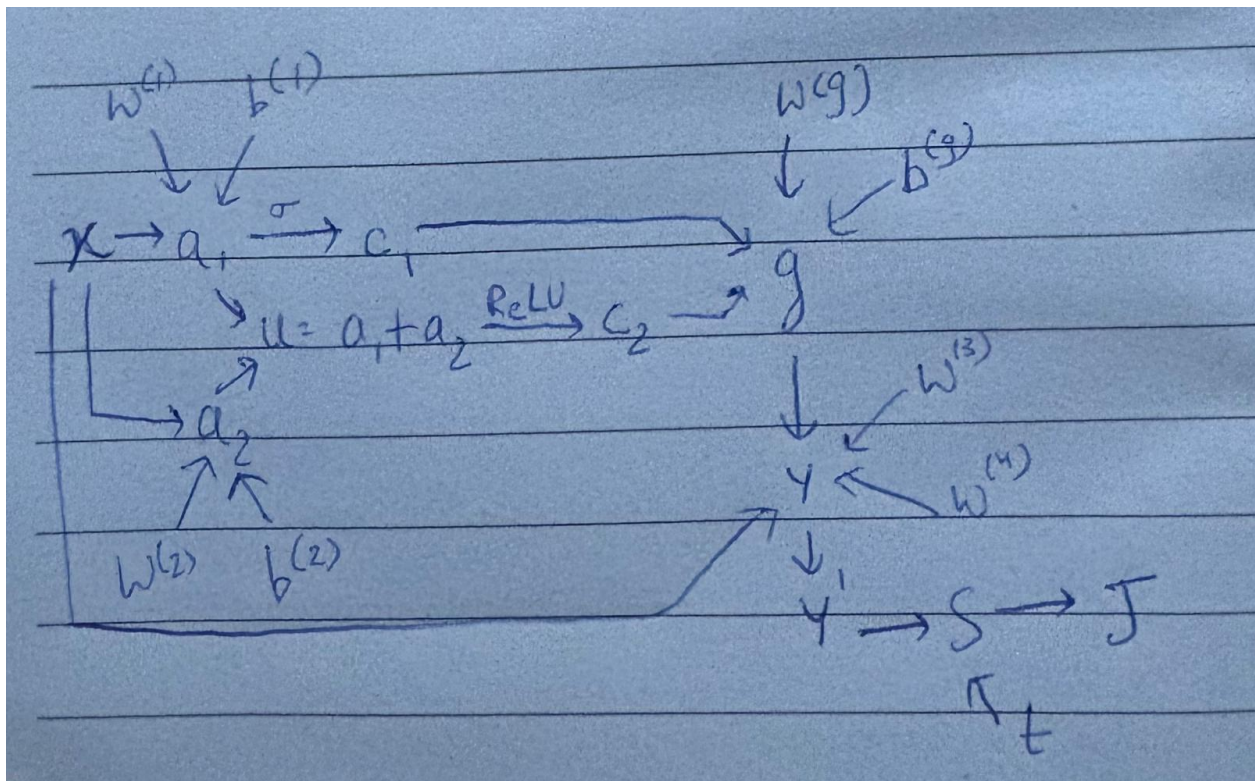 W^(1) b^(1) W^(g)
b^(g)
x → a_1 σ→ c_1 → g
u = a_1 + a_2 ReLU→ c_2 →
W^(3)
a_2
y W^(4)
W^(2) b^(2)
y' → S → J
t